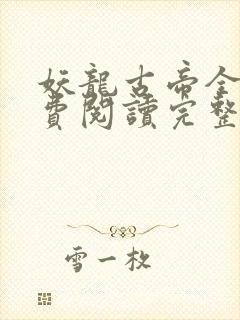 妖龍古帝全
費閱讀完整
雪一枚